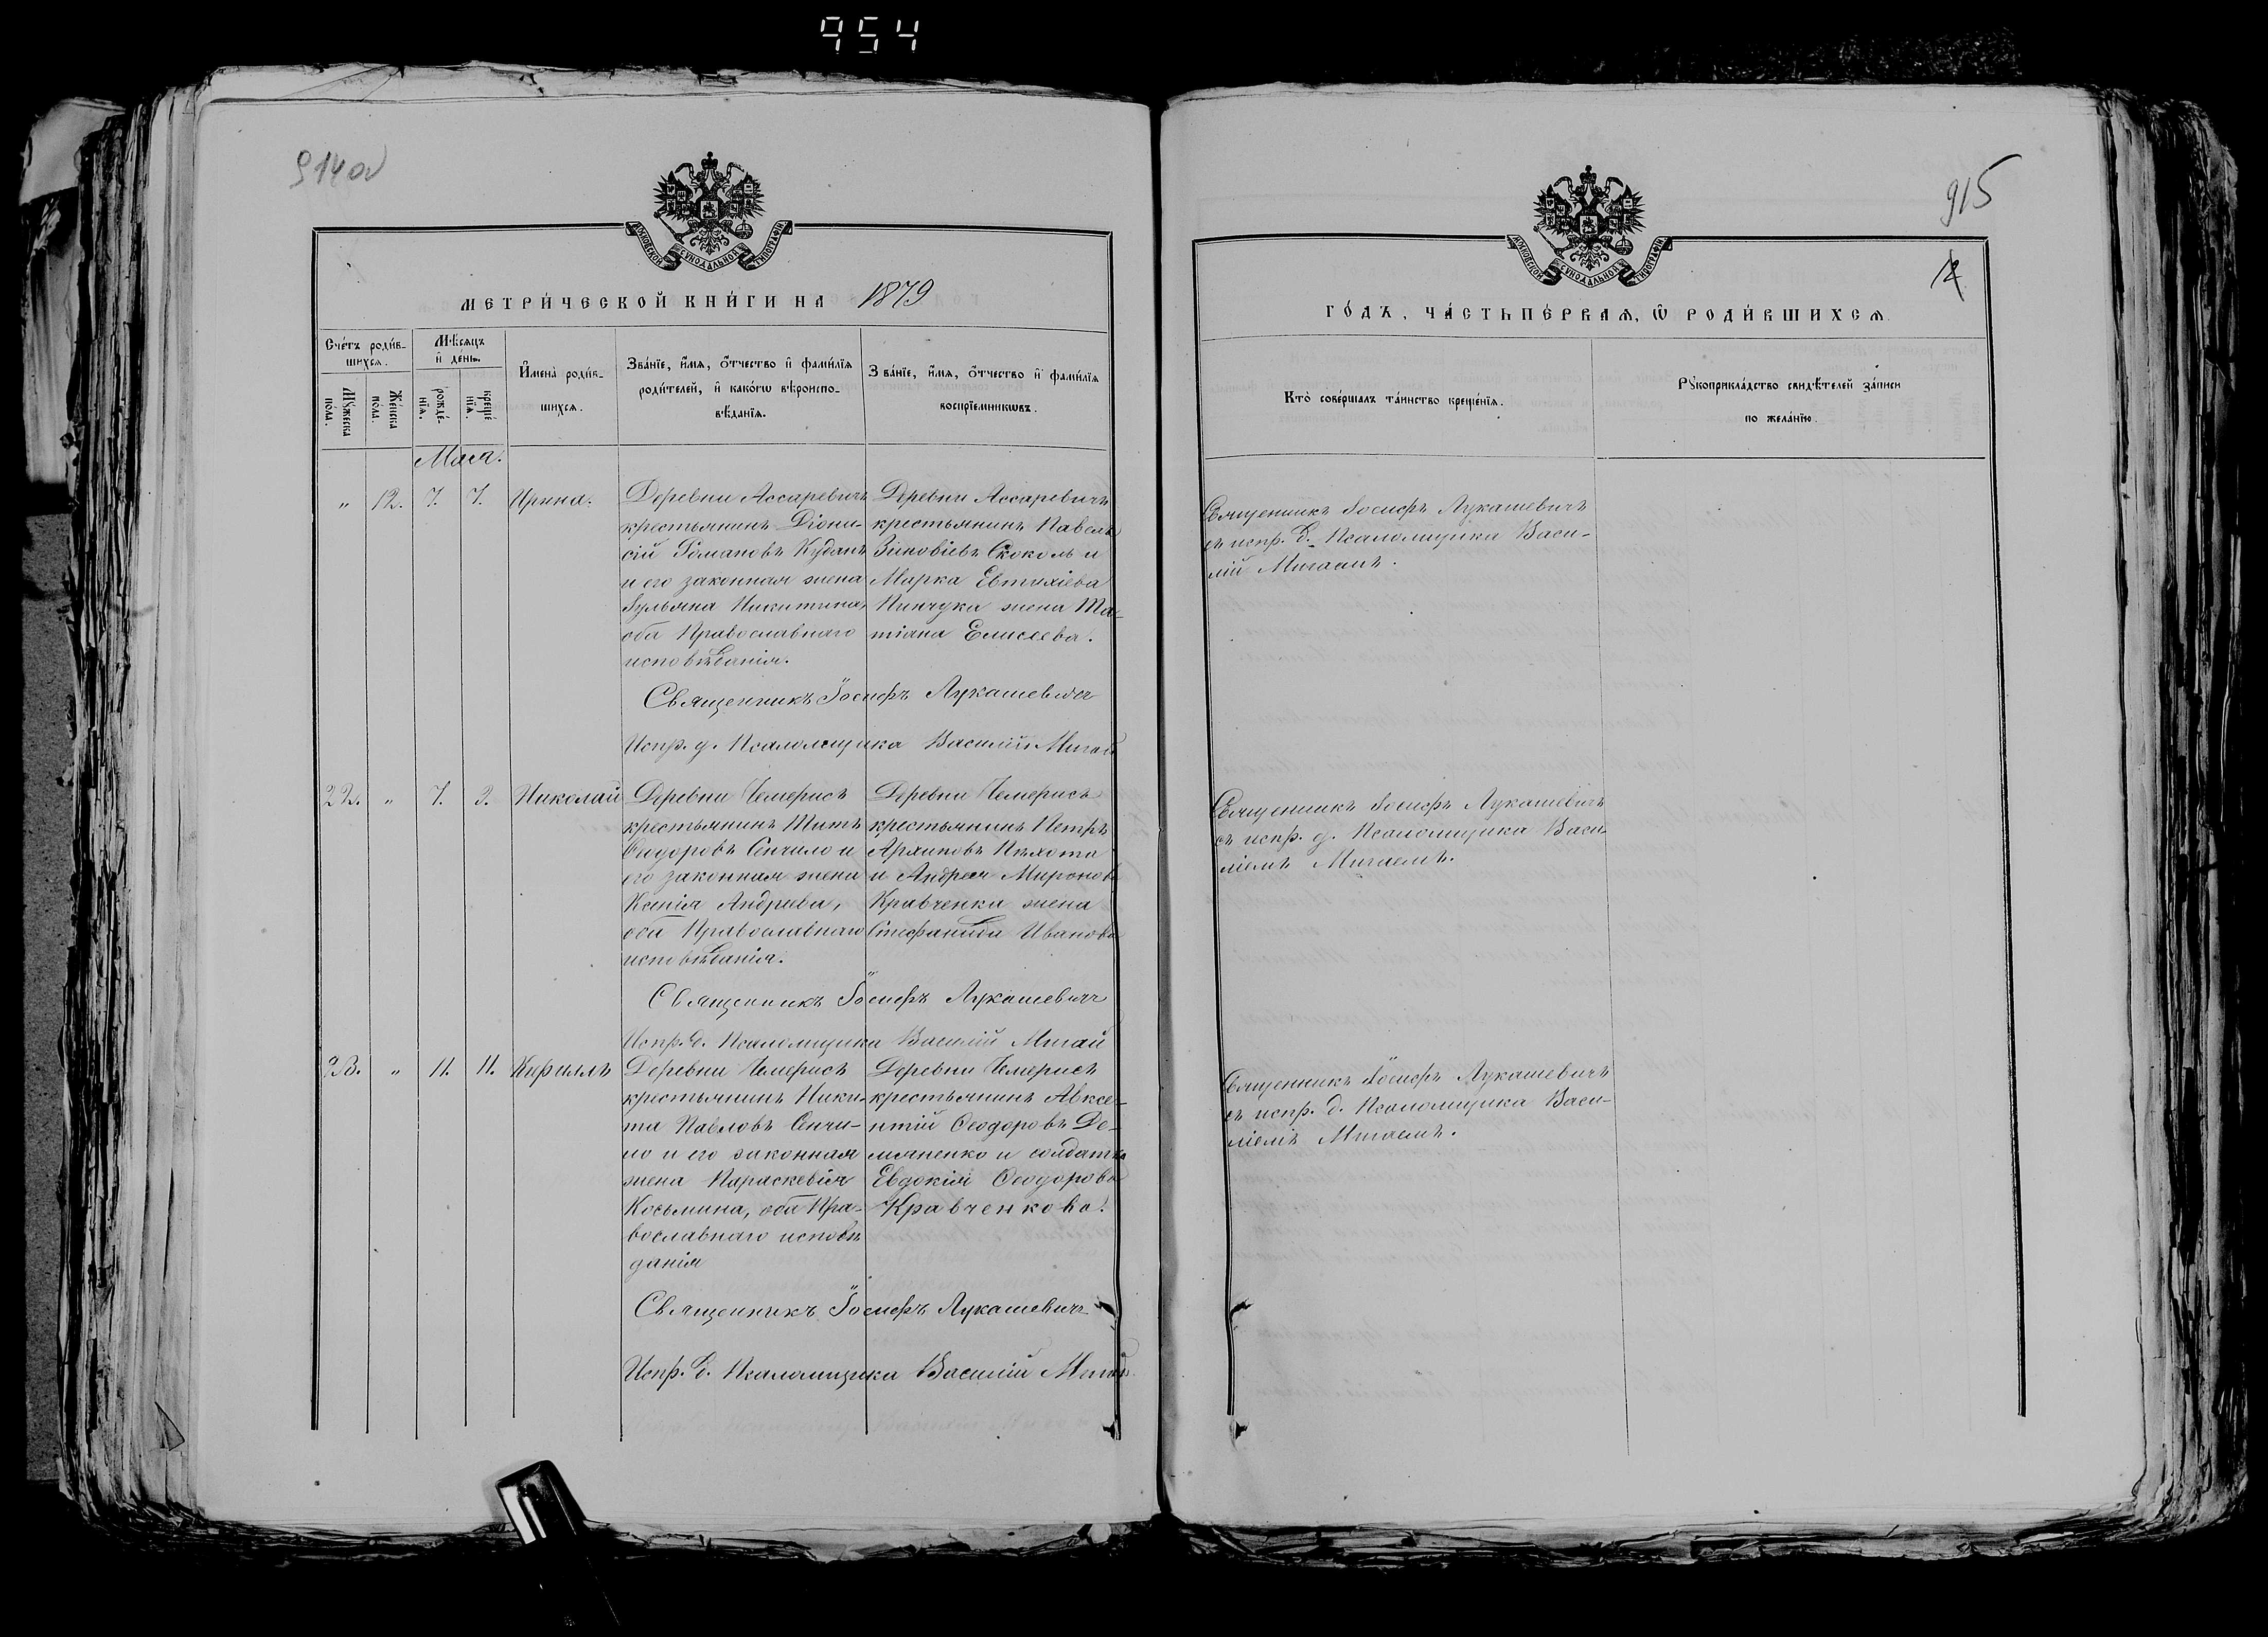 954
914об
915
12
МОСКОВСКОЙ СѴНОДАЛЬНОЙ ТИПОГРАФІИ
МЕТРИ́ЧЕСКОЙ КНИ́ГИ НА 1879
Сче́тъ роди́в-
шихся.
Мꙋ́жеска
по́ла.
Же́нска
по́ла.
Мѣ́сяцъ
и҆ де́нь.
рожде́-
нїѧ.
креще́
нїѧ.
И҆мена̀ роди́в-
шихсѧ.
Зва́нїе, и҆́мѧ, ѻ҆́тчество и҆ фами́лїѧ
роди́телей, и҆ како́гѡ вѣ́роиспо-
вѣ́данїѧ.
Зва́нїе, и҆́мѧ, ѻ҆́тчество и҆ фами́лїѧ
воспрїе́мникѡвъ.
Мая.
" 12. 7. 7. Ирина.
Деревни Ассаревичъ
крестьянинъ Діони-
сій Романовъ Кудан
и его законная жена
Іульяна Никитина,
оба Православнаго
исповѣданія.
Деревни Ассаревичъ
крестьянинъ Павелъ
Зиновіевъ Скоколь и
Марка Евтихіева
Пинчука жена Та-
тіана Елисеева.
Священникъ Іосифъ Лукашевичъ
Испр. д. Псаломщика Василій Мигай
22. " 7. 9. Николай
Деревни Чемерисъ
крестьянинъ Титъ
Сидоровъ Сенчило и
его законная жена
Ксенія Андреева,
оба Православнаго
исповѣданія.
Деревни Чемерисъ
крестьянинъ Петръ
Архиповъ Пѣхота
и Андрея Миронова
Кравченки жена
Стефанида Иванова
Священникъ Іосифъ Лукашевичъ
Испр. д. Псаломщика Василій Мигай
23. " 11. 11. Кириллъ
Деревни Чемерисъ
крестьянинъ Ники-
та Павловъ Сенчи-
ло и его законная
жена Параскевія
Косьмина, оба Пра-
вославнаго исповѣ
данія
Деревни Чемерисъ
крестьянинъ Авксе-
нтій Ѳеодоровъ Де-
мяненко и солдатка
Евдокія Ѳеодорова
Кравченкова.
Священникъ Іосифъ Лукашевичъ
Испр. д. Псаломщика Василій Мигай
МОСКОВСКОЙ СѴНОДАЛЬНОЙ ТИПОГРАФІИ
ГО́ДЪ, ЧА́СТЬ ПЕ́РВАѦ, Ѡ҆ РОДИ́ВШИХСѦ.
Кто̀ соверша́лъ та́инство креще́нїѧ.
Рꙋкоприкла́дство свидѣ́телей за́писи
по жела́нїю.
Священникъ Іосифъ Лукашевичъ
съ испр. д. Псаломщика Васи-
лій Мигаемъ.
Священникъ Іосифъ Лукашевичъ
съ испр. д. Псаломщика Васи-
ліемъ Мигаемъ.
Священникъ Іосифъ Лукашевичъ
съ испр. д. Псаломщика Васи-
ліемъ Мигаемъ.